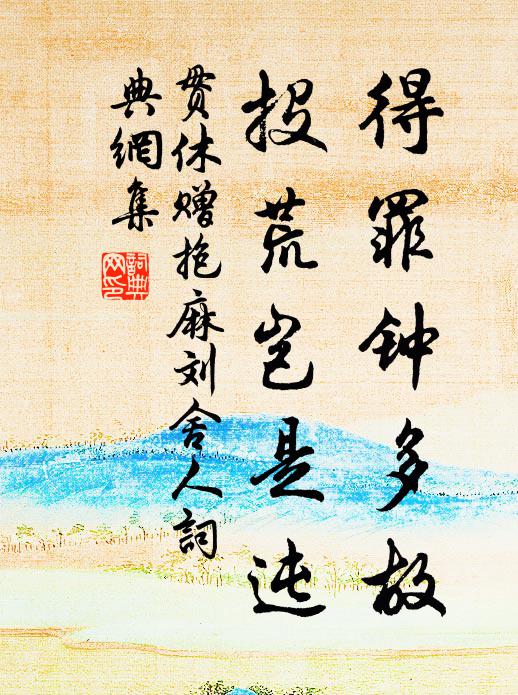 得罪钟多故
投荒岂是迍
贯休赠抱麻刘舍人詞
典網集
詞典
网印